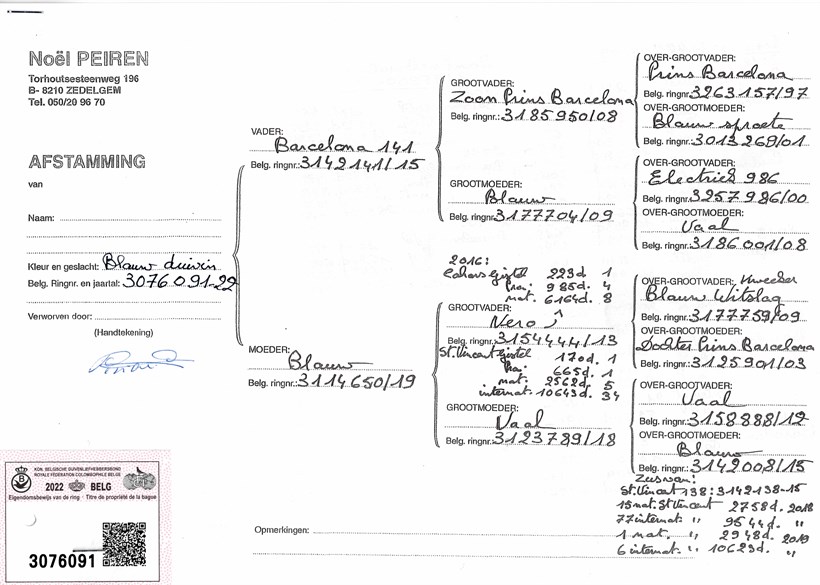 Noël PEIREN
Torhoutsesteenweg 196
B- 8210 ZEDELGEM
Tel. 050/20 96 70
AFSTAMMING
van
Naam:
Kleur en geslacht: Blauw duivin
Belg. Ringnr. en jaartal: 3076091-22
Verworven door:
(Handtekening)
VADER:
Barcelona 141
Belg. ringnr.: 3142141/15
MOEDER:
Blauw
Belg. ringnr.: 3114650/19
GROOTVADER:
Zoon Prins Barcelona
Belg. ringnr. 3185950/08
GROOTMOEDER:
Blauw
Belg. ringnr. 3177704/09
2016:
Cahors Gistel 223d. 1
Prov. 985d. 4
nat. 6164d. 8
GROOTVADER:
Nero
Belg. ringnr. 3154444/13
St. Vincent Gistel 170d. 1
Prov. 665d. 1
nat. 2562d. 5
internat. 10643d. 34
GROOTMOEDER:
Vaal
Belg. ringnr. 3123789/18
OVER-GROOTVADER:
Prins Barcelona
Belg. ringnr. 3263157/97
OVER-GROOTMOEDER:
Blauw sproete
Belg. ringnr. 3013269/01
OVER-GROOTVADER:
Electriek 986
Belg. ringnr. 3257986/00
OVER-GROOTMOEDER:
Vaal
Belg. ringnr. 3186001/08
OVER-GROOTVADER: Kweeker
Blauw Witslag
Belg. ringnr. 3177759/09
OVER-GROOTMOEDER:
Dochter Prins Barcelona
Belg. ringnr. 3125901/03
OVER-GROOTVADER:
Vaal
Belg. ringnr. 3158888/12
OVER-GROOTMOEDER:
Blauw
Belg. ringnr. 3142008/15
Zus van:
St. Vincent 138: 3142138-15
15 nat. St Vincent 2758d. 2018
77 internat. " 9544d. "
1 nat. " 2948d. 2019
6 internat. " 10623d. "
Opmerkingen:
KON. BELGISCHE DUIVENLIEFHEBBERSBOND
ROYALE FÉDÉRATION COLOMBOPHILE BELGE
2022 BELG
Eigendomsbewijs van de ring - Titre de propriété de la bague
3076091